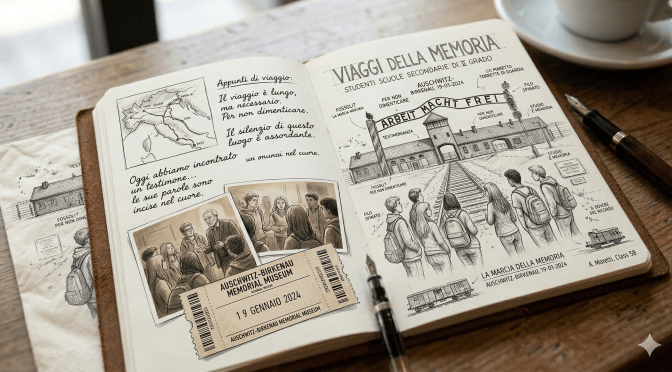 Appunti di viaggio:
Il viaggio è lungo,
ma necessario.
Per non dimenticare.
Il silenzio di questo
luogo è assordante.
Oggi abbiamo incontrato
un testimone...
le sue parole sono
incise nel cuore.
un onunai nel cuore.
AUSCHWITZ-BIRKENAU
MEMORIAL MUSEUM
19 GENNAIO 2024
AUSCHWITZ-BIRKENAU MEMORIAL MUSEUM
VIAGGI DELLA MEMORIA
STUDENTI SCUOLE SECONDARIE DI II GRADO
AUSCHWITZ-
BIRKENAU, 19-01-2024
TORRETTE DI GUARDIA
FILO
SPINATO
PER NON
DIMENTICARE
ARBEIT MACHT FREI
TESTIMONIANZA
PER NON
DIMENTICARE
STUDIO
E MEMORIA
PER NON DIMENTICARE
STUDIO
E MEMORIA
FILO
SPINATO
LA MARCIA DELLA MEMORIA
AUSCHWITZ-BIRKENAU, 19-01-2024
A. Moretti, Class 5B
PER NON DIMENTICARE